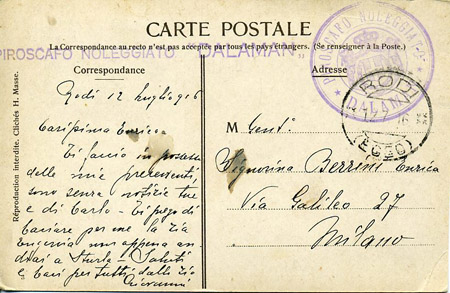 CARTE POSTALE
La Correspondance au recto n'est pas acceptée par tous les pays étrangers. (Se renseigner à la Poste.)
PIROSCAFO NOLEGGIATO "DALAMAN"
Correspondance
Adresse
PIROSCAFO NOLEGGIATO
DALAMAN
RODI
(EGEO)
Rodi 12 luglio 916
Carissima Enrica
Ti faccio in possesso
delle mie precedenti,
sono senza notizie tue
e di Carlo - Ti prego di
baciare per me la zia
Eugenia non appena an
drai a Sturla - Saluti
e baci per tutti dallo zio
Giovanni
M Gent.
Signorina Berrini Enrica
Via Galileo 27
Milano
Réproduction interdite. Clichés H. Masse.